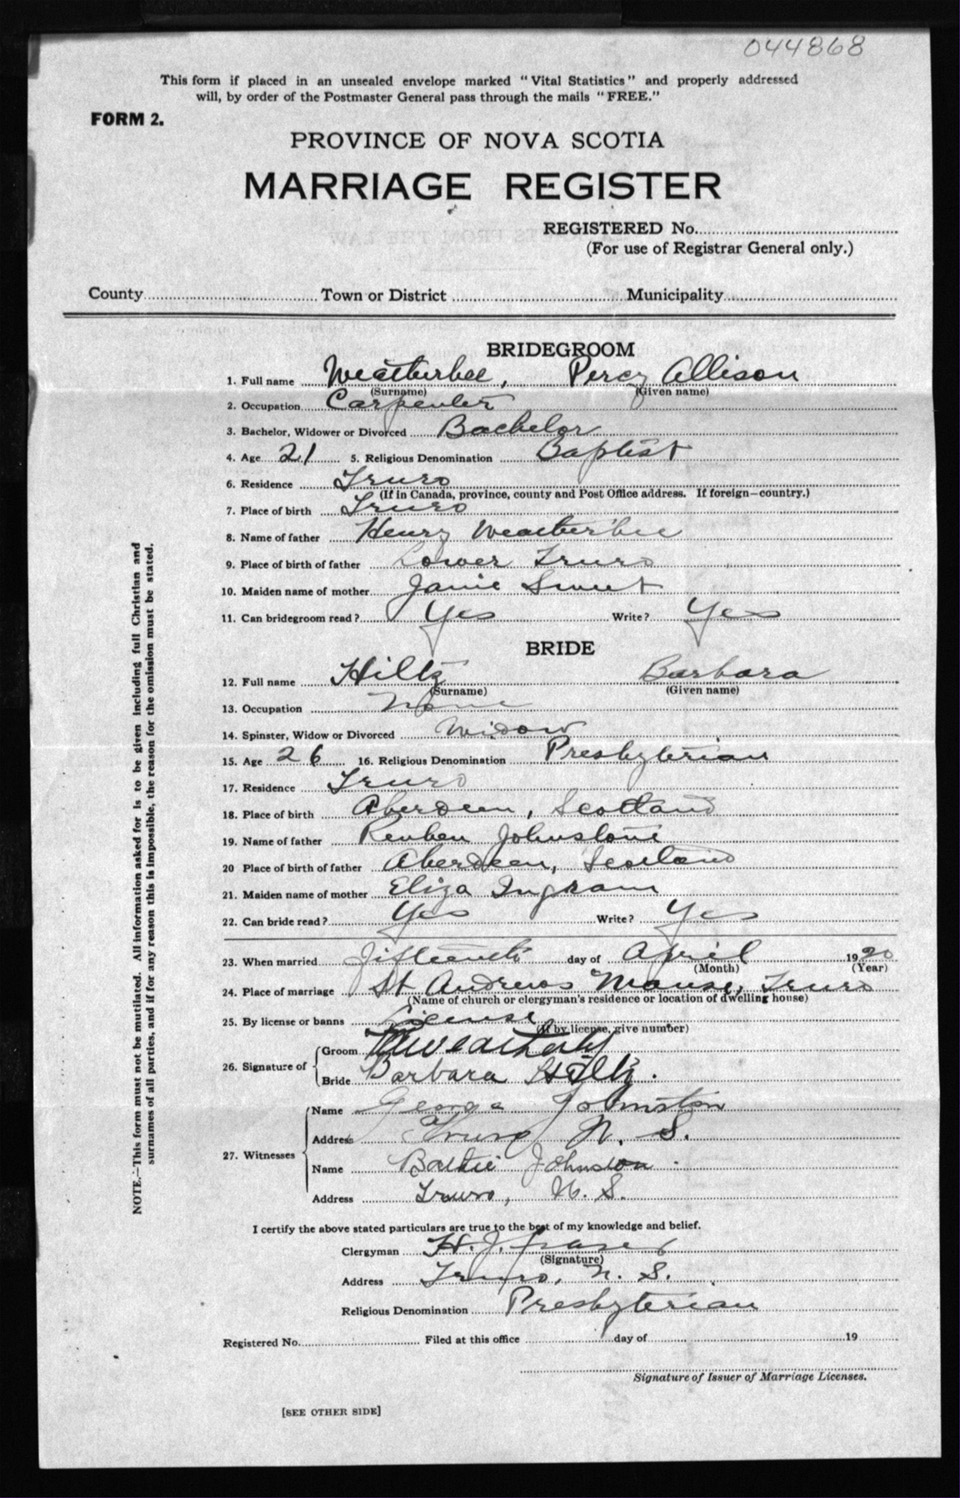 044868
This form if placed in an unsealed envelope marked "Vital Statistics" and properly addressed
will, by order of the Postmaster General pass through the mails "FREE."
FORM 2.
PROVINCE OF NOVA SCOTIA
MARRIAGE REGISTER
REGISTERED No.
(For use of Registrar General only.)
County Town or District Municipality
BRIDEGROOM
1. Full name Weatherbee, Percy Allison
(Surname) (Given name)
2. Occupation Carpenter
3. Bachelor, Widower or Divorced Bachelor
4. Age 21 5. Religious Denomination Baptist
6. Residence Truro
(If in Canada, province, county and Post Office address. If foreign—country.)
7. Place of birth Truro
8. Name of father Henry Weatherbee
9. Place of birth of father Lower Truro
10. Maiden name of mother Janie Sweet
11. Can bridegroom read? Yes Write? Yes
BRIDE
12. Full name Hiltz Barbara
(Surname) (Given name)
13. Occupation None
14. Spinster, Widow or Divorced Widow
15. Age 26 16. Religious Denomination Presbyterian
17. Residence Truro
18. Place of birth Aberdeen, Scotland
19. Name of father Reuben Johnstone
20 Place of birth of father Aberdeen, Scotland
21. Maiden name of mother Eliza Ingram
22. Can bride read? Yes Write? Yes
23. When married Fifteenth day of April 1920
(Month) (Year)
24. Place of marriage St Andrews Manse, Truro
(Name of church or clergyman's residence or location of dwelling house)
25. By license or banns License
(If by license, give number)
26. Signature of
Groom
Bride Barbara Hiltz.
27. Witnesses
Name George Johnston
Address Truro N. S.
Name Johnston
Address Truro, N. S.
I certify the above stated particulars are true to the best of my knowledge and belief.
Clergyman H. J. Fraser
(Signature)
Address Truro, N. S.
Religious Denomination Presbyterian
Registered No. Filed at this office day of 19
Signature of Issuer of Marriage Licenses.
[SEE OTHER SIDE]
NOTE.—This form must not be mutilated. All information asked for is to be given including full Christian and
surnames of all parties, and if for any reason this is impossible, the reason for the omission must be stated.